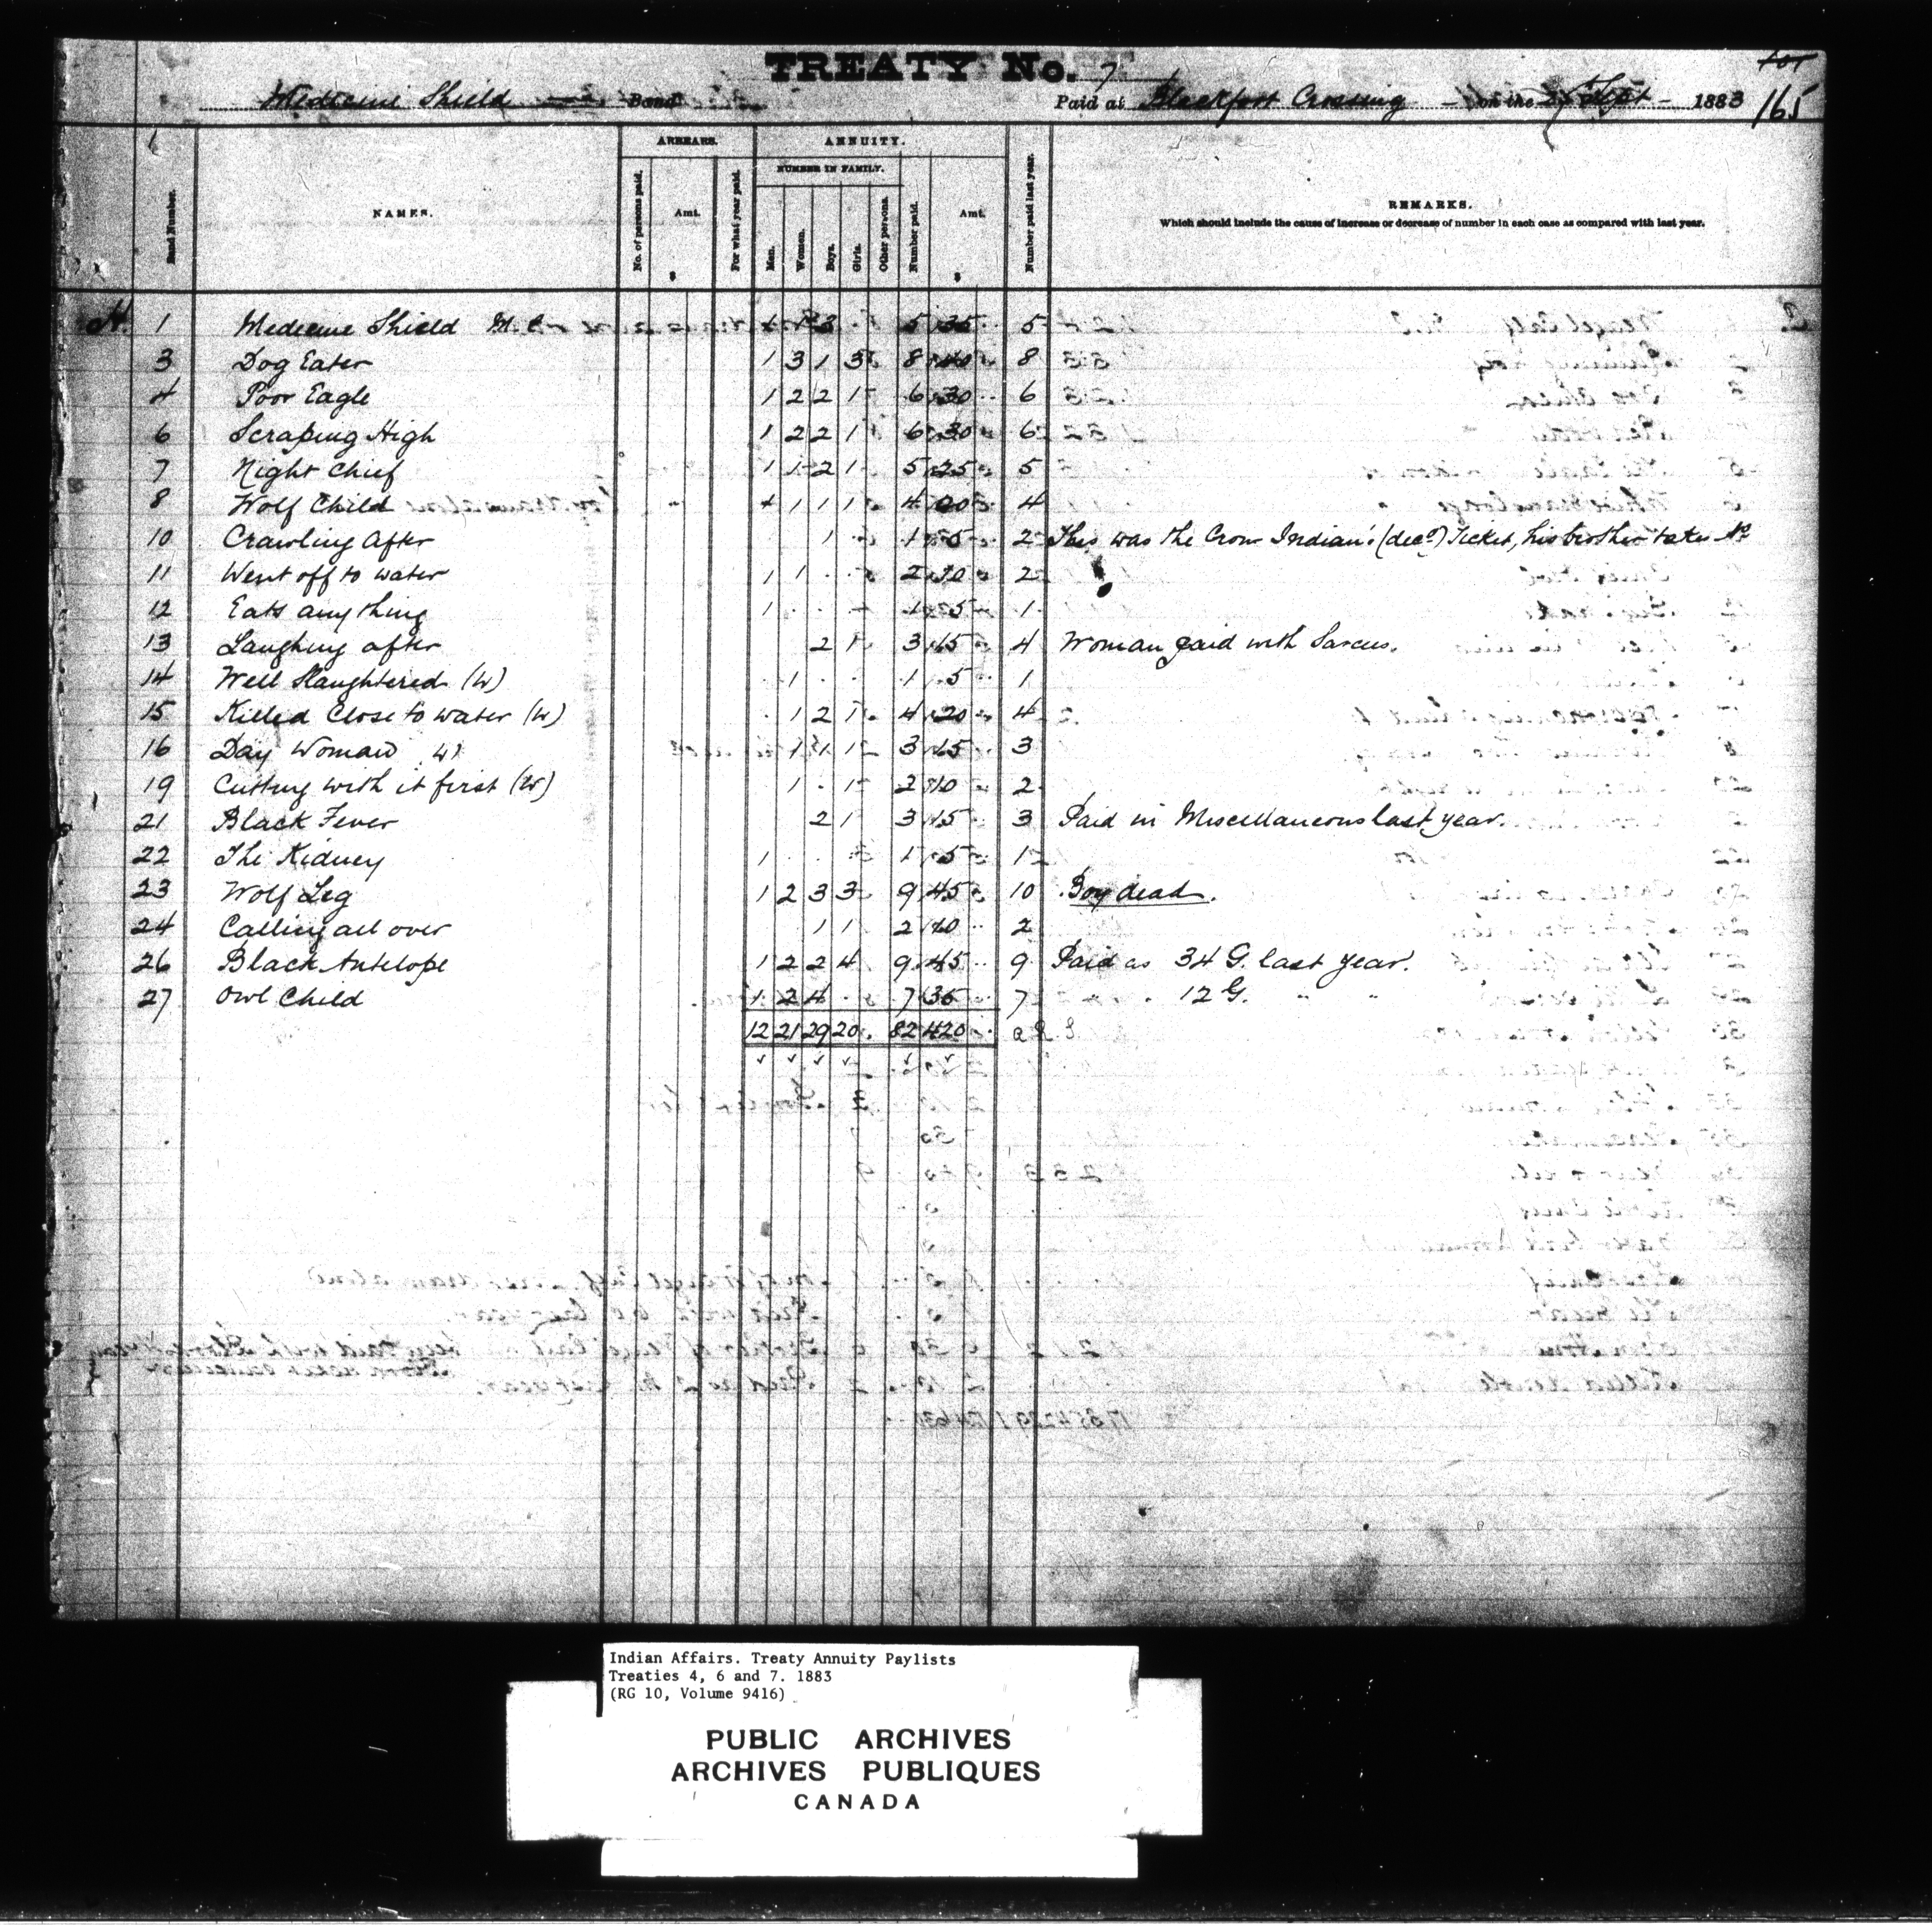 TREATY No. 7
Medicine Shield Band Paid at Blackfoot Crossing on the Sept 1883 165
ARREARS. ANNUITY.
NUMBER IN FAMILY.
Band Number. NAMES. No. of persons paid. Amt. $ For what year paid. Men. Women. Boys. Girls. Other persons. Number paid. Amt. $ Number paid last year. REMARKS.
Which should include the cause of increase or decrease of number in each case as compared with last year.
H. 1 Medicine Shield M.C. 1 1 3 5 35 5
3 Dog Eater 1 3 1 3 8 40 8
4 Poor Eagle 1 2 2 1 6 30 6
6 Scraping High 1 2 2 1 6 30 6
7 Night Chief 1 1 2 1 5 25 5
8 Wolf Child 1 1 1 1 4 20 4
10 Crawling After 1 1 5 2 This was the Crow Indian's (decd) Ticket, his brother takes No
11 Went off to water 1 1 2 10 2
12 Eats anything 1 1 5 1
13 Laughing after 2 1 3 15 4 Woman paid with Sarcees.
14 Well Slaughtered (W) 1 1 5 1
15 Killed Close to water (W) 1 2 1 4 20 4
16 Day Woman (W) 1 1 1 3 15 3
19 Cutting with it first (W) 1 1 2 10 2
21 Black Fever 2 1 3 15 3 Paid in Miscellaneous last year.
22 The Kidney 1 1 5 1
23 Wolf Leg 1 2 3 3 9 45 10 Boy dead.
24 Calling all over 1 1 2 10 2
26 Black Antelope 1 2 2 4 9 45 9 Paid as 34 G. last year.
27 Owl Child 1 2 4 7 35 7 " 12 G. " "
12 21 29 20 82 420
Indian Affairs. Treaty Annuity Paylists
Treaties 4, 6 and 7. 1883
(RG 10, Volume 9416)
PUBLIC ARCHIVES
ARCHIVES PUBLIQUES
CANADA